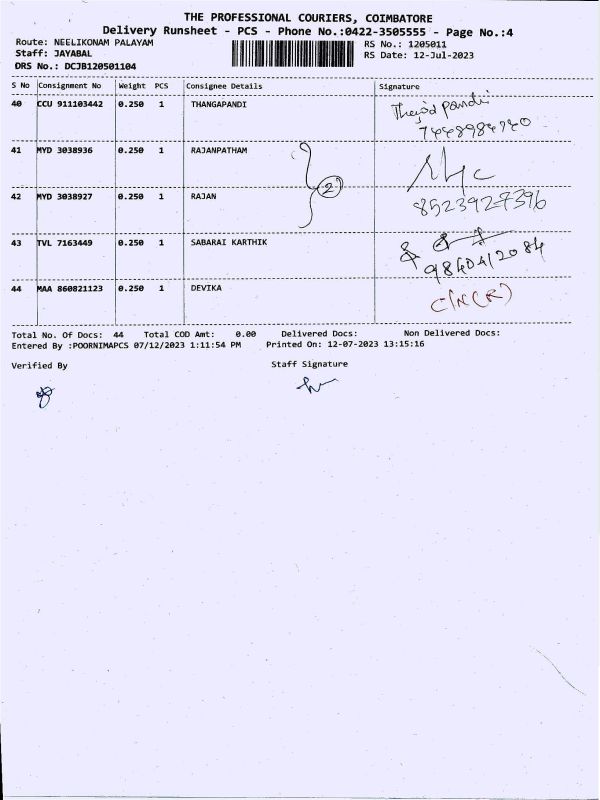 THE PROFESSIONAL COURIERS, COIMBATORE
Delivery Runsheet - PCS - Phone No.:0422-3505555 - Page No.:4
Route: NEELIKONAM PALAYAM RS No.: 1205011
Staff: JAYABAL RS Date: 12-Jul-2023
DRS No.: DCJB120501104
S No Consignment No Weight PCS Consignee Details Signature
40 CCU 911103442 0.250 1 THANGAPANDI
41 MYD 3038936 0.250 1 RAJANPATHAM
2
42 MYD 3038927 0.250 1 RAJAN 8523927396
43 TVL 7163449 0.250 1 SABARAI KARTHIK
9840412084
44 MAA 860821123 0.250 1 DEVIKA
Total No. Of Docs: 44 Total COD Amt: 0.00 Delivered Docs: Non Delivered Docs:
Entered By :POORNIMAPCS 07/12/2023 1:11:54 PM Printed On: 12-07-2023 13:15:16
Verified By Staff Signature